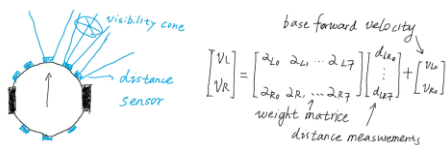 visibility cone
distance
sensor
base forward velocity
[VL VR] = [2L0 2L1 ... 2L7 2R0 2R1 ... 2R7] [dLR0 ⋮ dLR7] + [VL0 VR0]
weight matrice
distance measurements